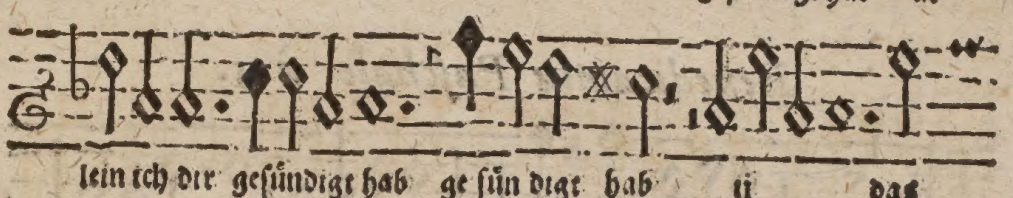 lein ich dir gesündigt hab ge sün digt hab ij das